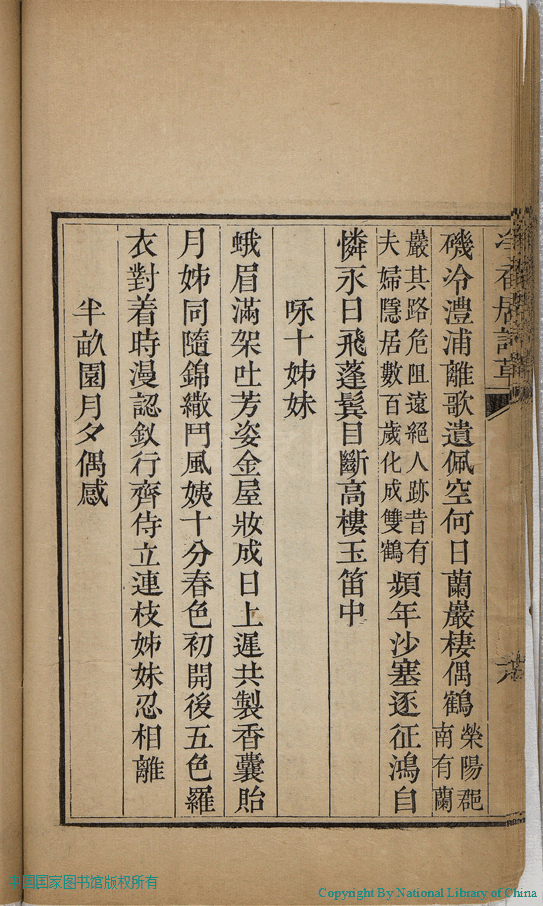 冷香居詩草
磯冷澧浦離歌遺佩空何日蘭巖棲偶鶴榮陽郡南有蘭
巖其路危阻遠絕人跡昔有夫婦隱居數百歲化成雙鶴頻年沙塞逐征鴻自
憐永日飛蓬鬢目斷高樓玉笛中
咏十姊妹
蛾眉滿架吐芳姿金屋妝成日上遲共製香囊貽
月姊同隨錦繖鬥風姨十分春色初開後五色羅
衣對着時漫認釵行齊侍立連枝姊妹忍相離
半畝園月夕偶感
中国国家图书馆版权所有
Copyright By National Library of China